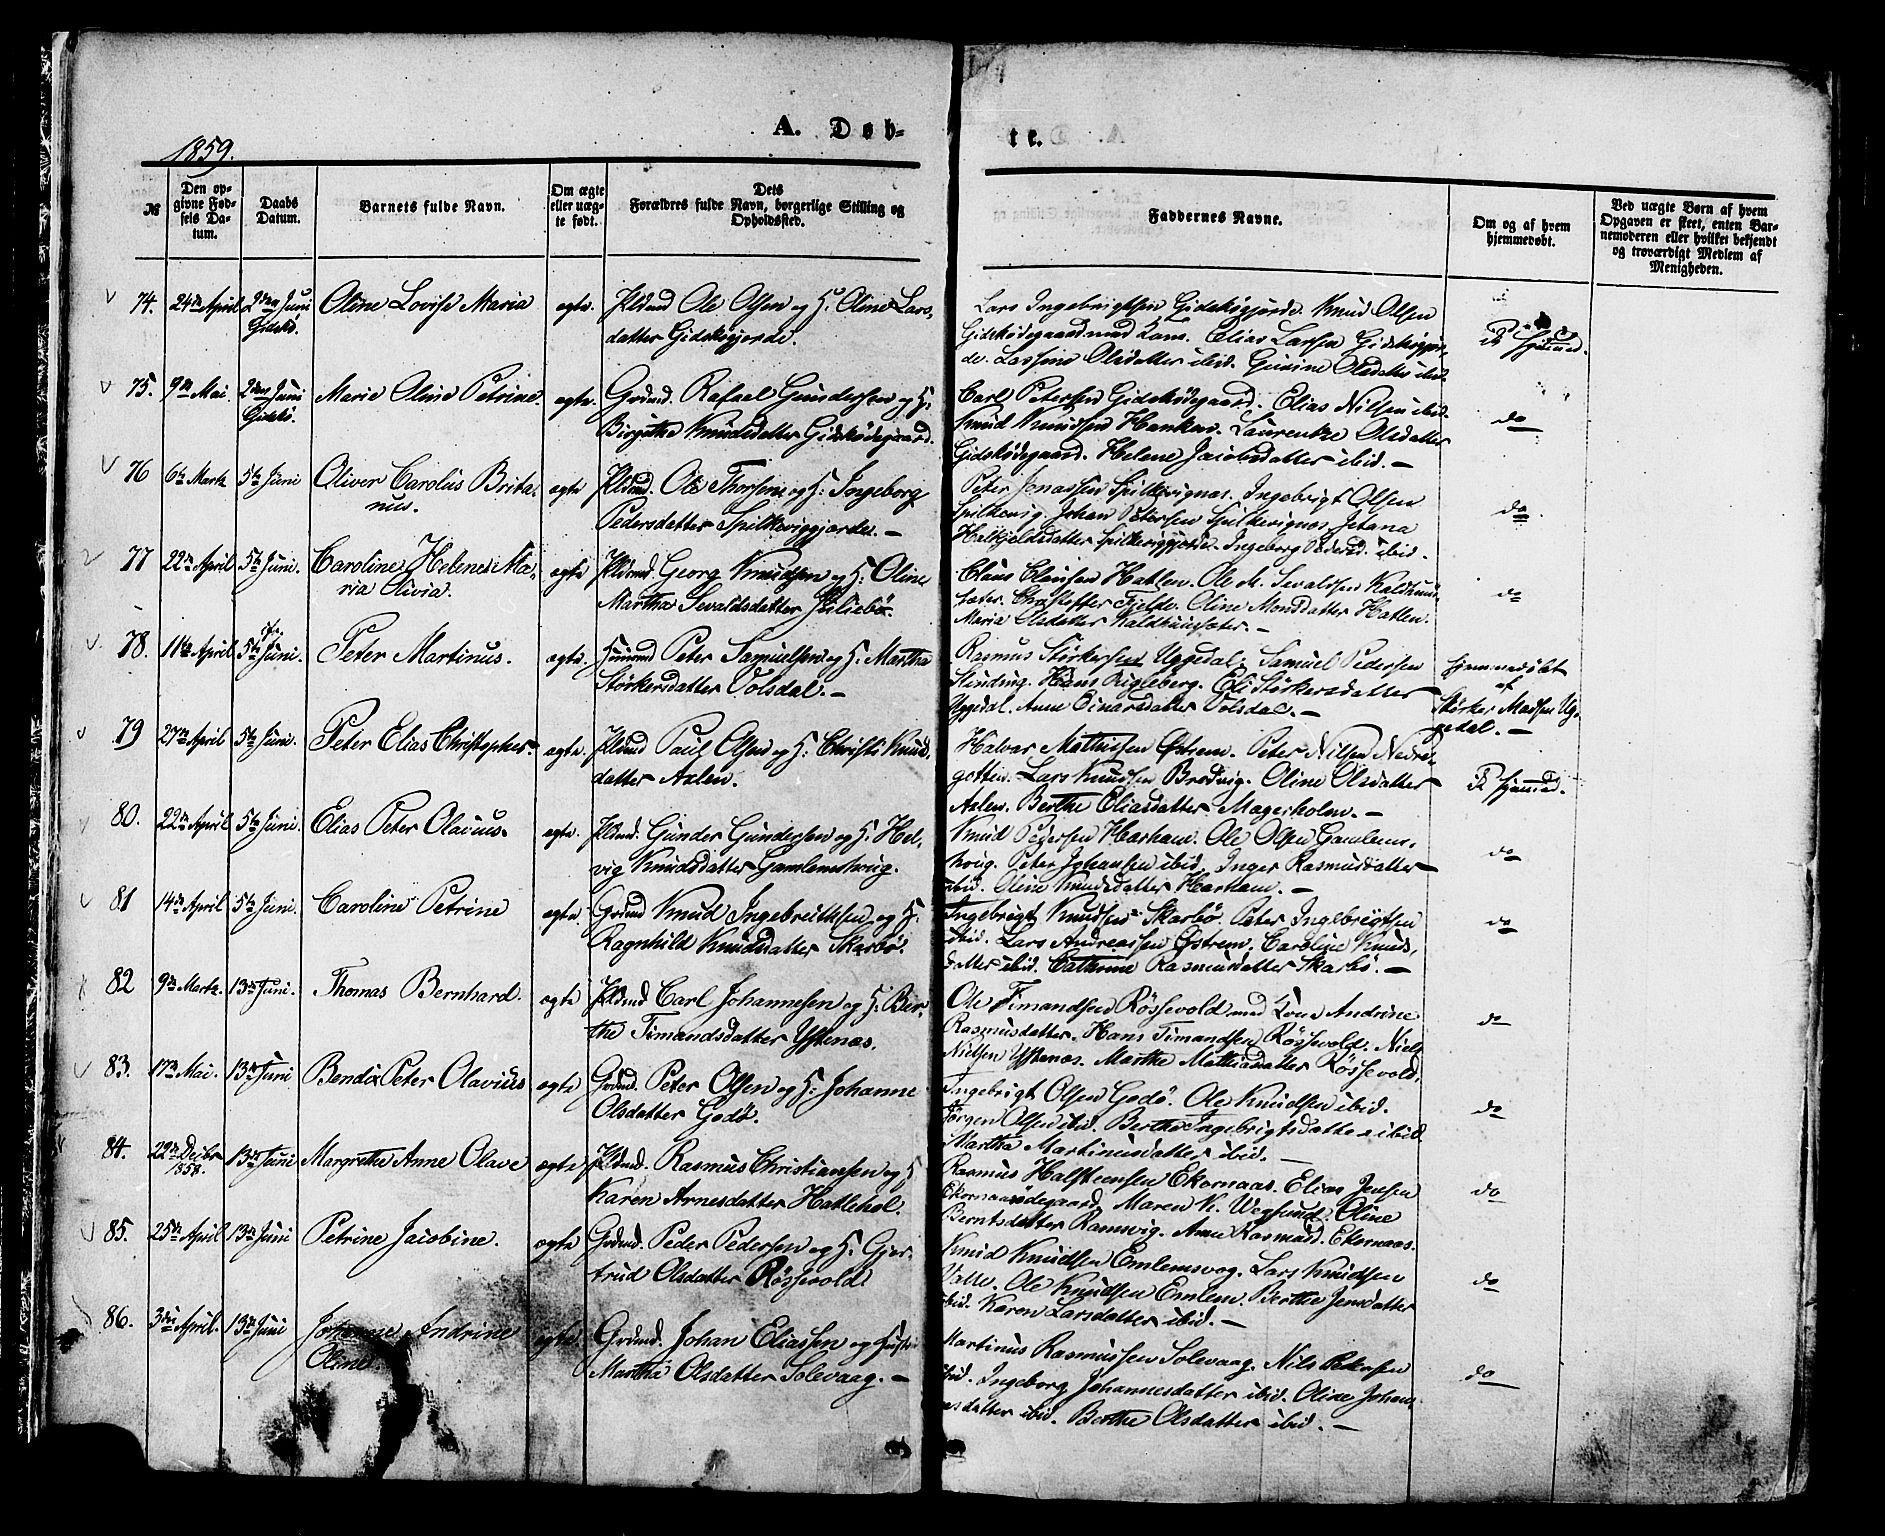 1859.
A. Døb-
te.
№
Den op-
givne Fød-
sels Da-
tum.
Daabs
Datum.
Barnets fulde Navn.
Om ægte
eller uæg-
te født.
Dets
Forældres fulde Navn, borgerlige Stilling og
Opholdssted.
Faddernes Navne.
Om og af hvem
hjemmedøbt.
Ved uægte Børn af hvem
Opgaven er skeet, enten Bar-
nemoderen eller hvilket bekjendt
og troværdigt Medlem af
Menigheden.
74. 24de April 2den Juni Oline Lovise Maria ægte. Ole Olsen og H. Oline Lars-
Gidskø. datter Gidskøgjerde.
Lars Ingebrigtsen Gidskøgjerde. Knud Olsen
Gidskødegaard med Kone. Elias Larsen Gidskøgjer-
de. Olsdatter ibid. Gurine Olsdatter ibid.
75. 9de Mai 2den Juni Marie Oline Petrine. ægte. Grdmd. Rafael Gundersen og H.
Gidskø. Birgithe Knudsdatter Gidskødegaard.
Carl Petersen Gidskødegaard. Elias Nilsen ibid.
Knud Knudsen Hanken. Laurentze Olsdatter
Gidskødegaard. Helene Jacobsdatter ibid. —
do
76 6te Marts 5te Juni Oliver Carolus Brita- ægte Ole Thorsen og H. Ingeborg
nus. Pedersdatter Spilkeviggjerde. —
Peter Jonassen Spilkevignæs. Ingebrigt Olsen
Spilkevig. Johan Petersen Spilkevignæs. Jetana
Halkjeldsdatter Spilkeviggjerde. Ingeborg Pedersd. ibid.
do
77 22de April 5te Juni. Caroline Helene Ma- ægte Georg Knudsen og H. Oline
ria Olivia. Martha Sevaldsdatter
Claus Clausen Hatlen. Ole M. Sevaldsen Kaldhuus-
sæter. Christoffer Fjelde. Oline Monsdatter Hatlen.
Maria Olsdatter Kaldhuussæter. —
do
78. 11te April 5te Juni. Peter Martinus. ægte. Huusmd Peter Samuelsen og H. Martha
Størkersdatter Volsdal. —
Rasmus Størkersen Uggedal. Samuel Pedersen
Slinding. Hans Aigleberg. Eli Størkersdatter
Uggedal. Anne Einarsdatter Volsdal. —
hjemmedøbt
af
Størker Madsen Ug-
gedal. —
79 27de April 5te Juni. Peter Elias Christopher. ægte. Paul Olsen og H. Christi Knuds-
datter Aslen.
Halvar Mathisen Østrem. Peter Nilsen Nedre-
gotten. Lars Knudsen Bredvig. Oline Olsdatter
Aslen. Berthe Eliasdatter Magerholm. —
80. 22de April 5te Juni. Elias Peter Olavius. ægte. Gunder Gundersen og H. Hel-
vig Knudsdatter Gamlemshoug.
Knud Pedersen Harham. Ole Olsen Gamlems-
houg. Peter Johansen ibid. Inger Rasmusdatter
ibid. Oline Knudsdatter Harham. —
do
81 14de April 5te Juni. Caroline Petrine ægte Grdmd Knud Ingebrigtsen og H.
Ragnhild Knudsdatter Skarbø.
Ingebrigt Knudsen Skarbø. Peter Ingebrigtsen
ibid. Lars Andreassen Østrem. Caroline Knuds-
datter ibid. Cathrine Rasmusdatter Skarbø. —
do
82 9de Marts. 13de Juni. Thomas Bernhard. ægte Carl Johannesen og H. Ber-
the Timandsdatter Ystenæs.
Ole Timandsen Røssevold med Kone Andrine
Rasmusdatter. Hans Timandsen Røssevold. Niels
Nielsen Ystenæs. Marthe Mathiasdatter Røssevold.
do
83. 17de Mai. 13de Juni Bendix Peter Olavius ægte Grdmd. Peter Olsen og H. Johanne
Olsdatter Godø.
Ingebrigt Olsen Godø. Ole Knudsen ibid.
Jørgen Olsen ibid. Berthe Ingebrigtsdatter ibid.
Martha Martinusdatter ibid. —
do
84. 29de Decbr 13de Juni Margrethe Anne Olave ægte Rasmus Christiansen og H.
1858. Karen Arnesdatter Hatlehol.
Rasmus Halsteensen Ekornaas. Elias Jensen
Ekornaasødegaard. Maren K. Wegsund. Oline
Berntsdatter Ramsvig. Anne Rasmusd. Ekornaas.
do
85. 25de April 13de Juni Petrine Jacobine. ægte Grdmd. Peder Pedersen og H. Gjer-
trud Olsdatter Røssevold
Knud Knudsen Emlemsvog. Lars Knudsen
Valle. Ole Knudsen Emlem. Berthe Jensdatter
ibid. Karen Larsdatter ibid. —
do
86. 3die April. 13de Juni Johanne Andrine ægte Grdmd. Johan Eliassen og Hustru
Oline Martha Olsdatter Solevaag. —
Martinus Rasmussen Solevaag. Nils Petersen
ibid. Ingeborg Johannesdatter ibid. Oline Johan-
nesdatter ibid. Berthe Olsdatter ibid. —
do